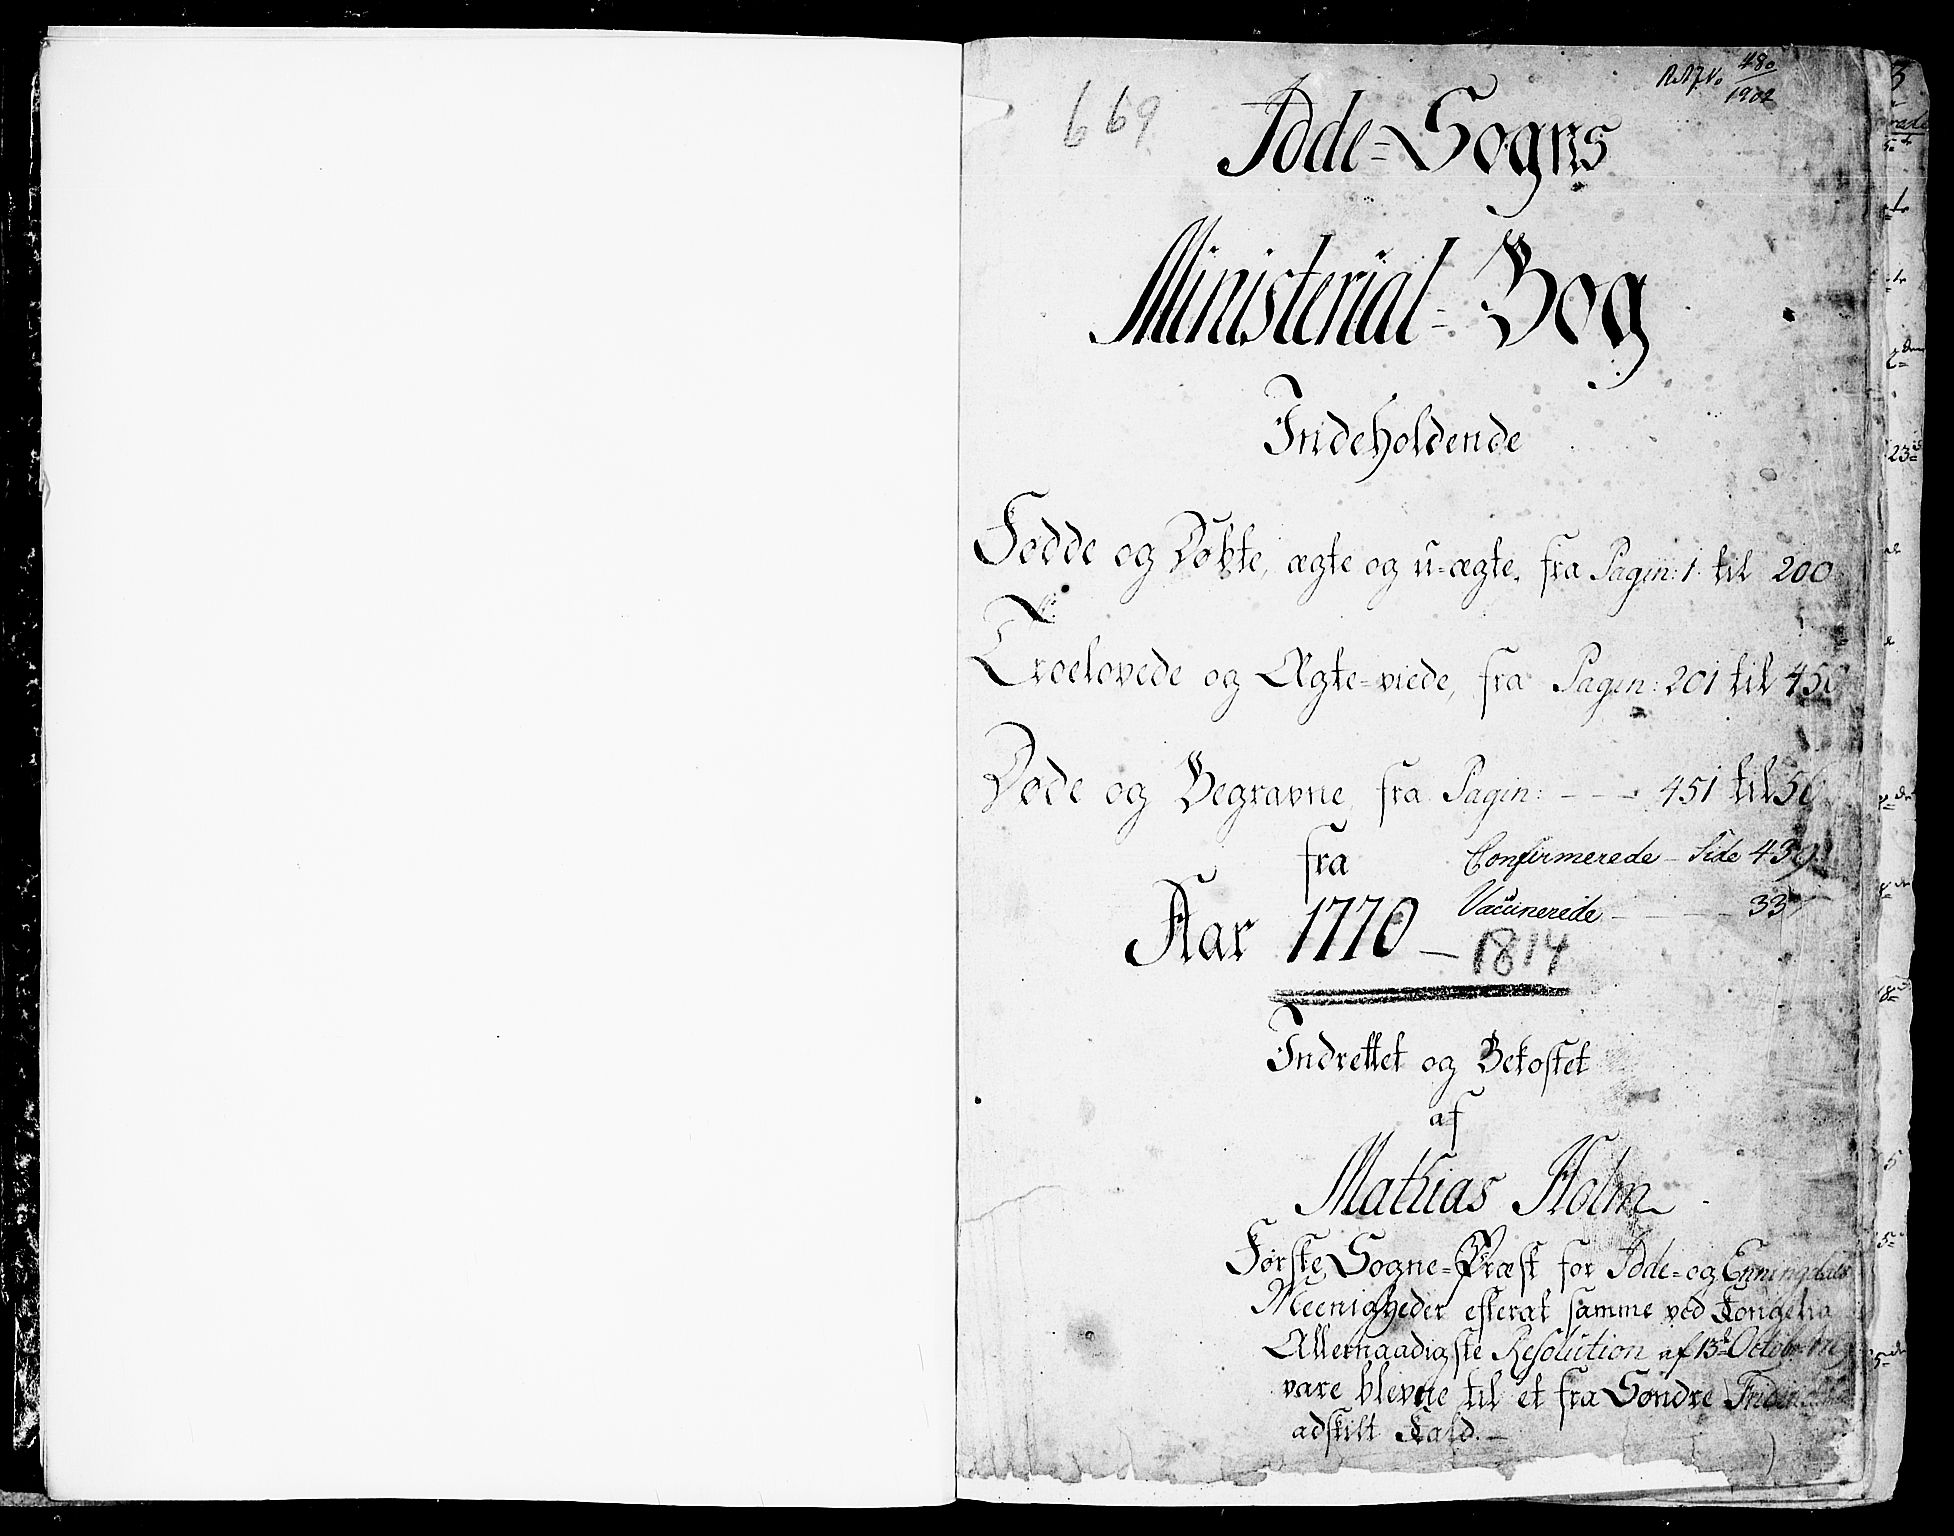 669
480
1902
Idde=Sogns
Ministerial=Bog
Indeholdende
Fødde og Døbte, ægte og u=ægte, fra Pagin: 1. til 200
Troelovede og Ægte=viede, fra Pagin: 201 til 450
Døde og Begravne, fra Pagin: - - - 451 til 56
fra
Confirmerede - Side 439
Vaccinerede - - - 337
Aar 1770 - 1814
Indrettet og Bekostet
af
Mathias Holm
Første Sogne=Præst for Idde= og Enningdals
Meenigheder efterat samme ved Kongelig
Allernaadigste Resolution af 13de Octobr.
vare blevne til et fra Søndre
adskilt Kald. -